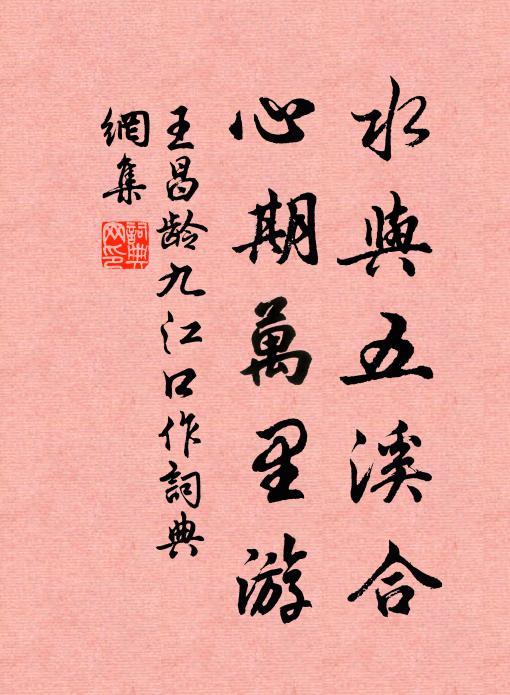 水與五溪合
心期萬里游
王昌龄九江口作詞典
網集
詞典
网印